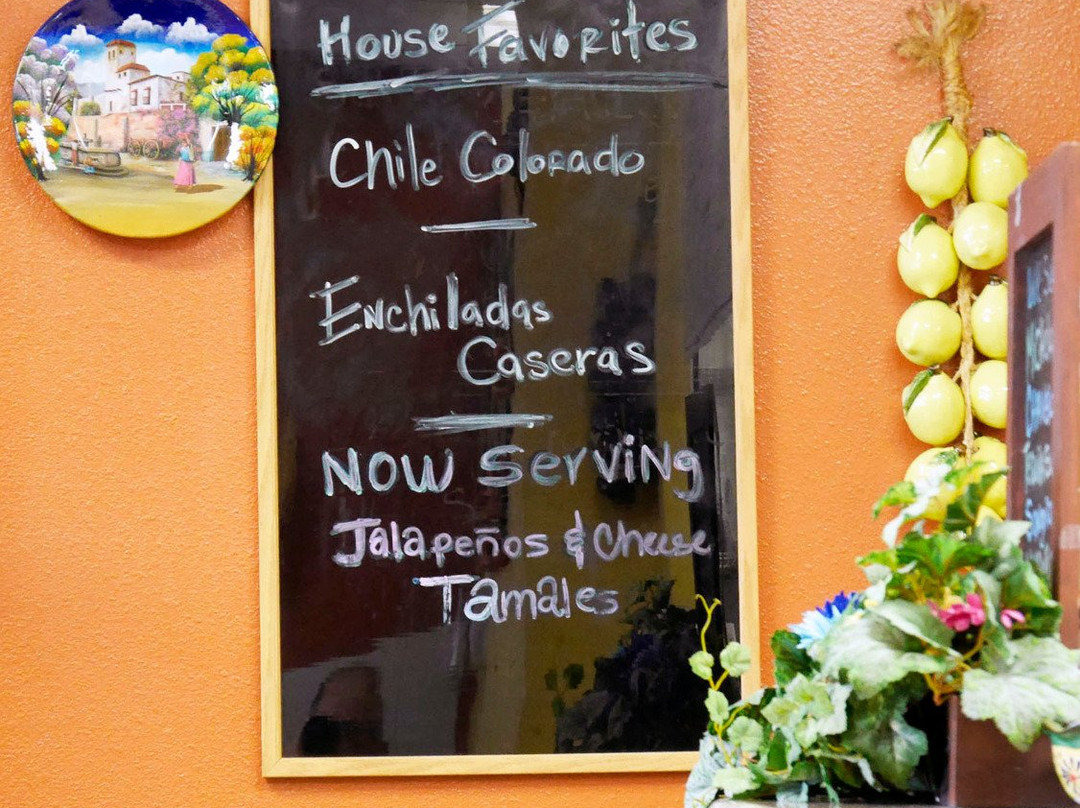 House Favorites
Chile Colorado
Enchiladas
Caseras
Now Serving
Jalapeños & Cheese
Tamales